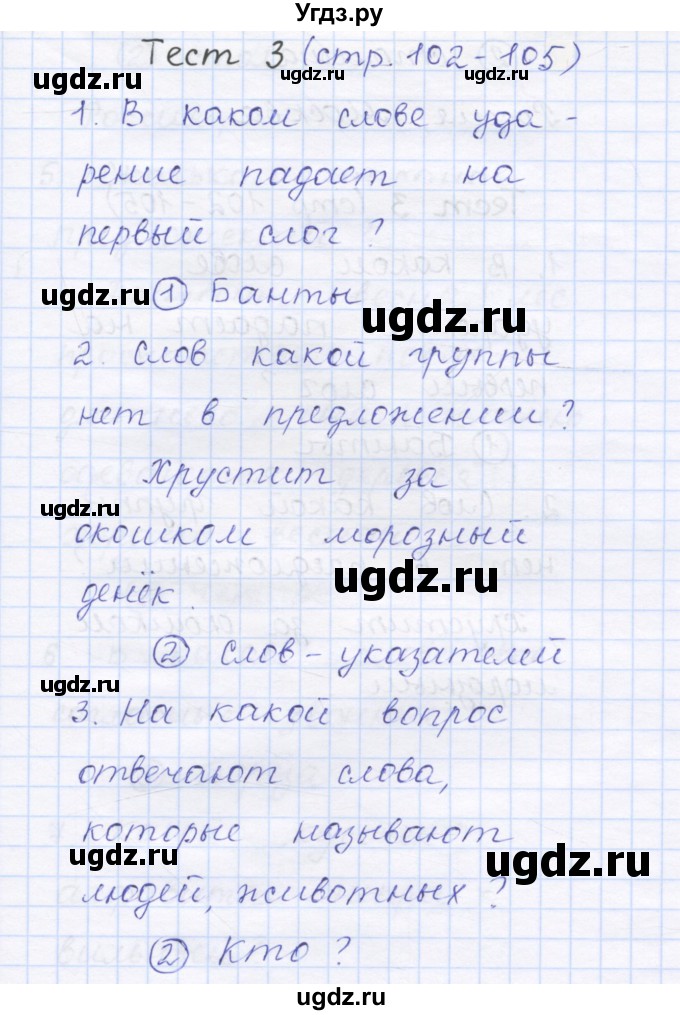 Угдз.ру
Тест 3 (стр. 102-105)
ugdz.ru ugdz.ru ugdz.ru
1. В каком слове уда-
рение падает на
первый слог?
ugdz.ru ① Банты ugdz.ru
2. Слов какой группы
нет в предложении?
Хрустит за
ugdz.ru
окошком морозный
ugdz.ru
денёк.
② слов-указателей
ugdz.ru
3. На какой вопрос
отвечают слова,
которые называют
ugdz.ru ugdz.ru
людей, животных?
② Кто?
ugdz.ru